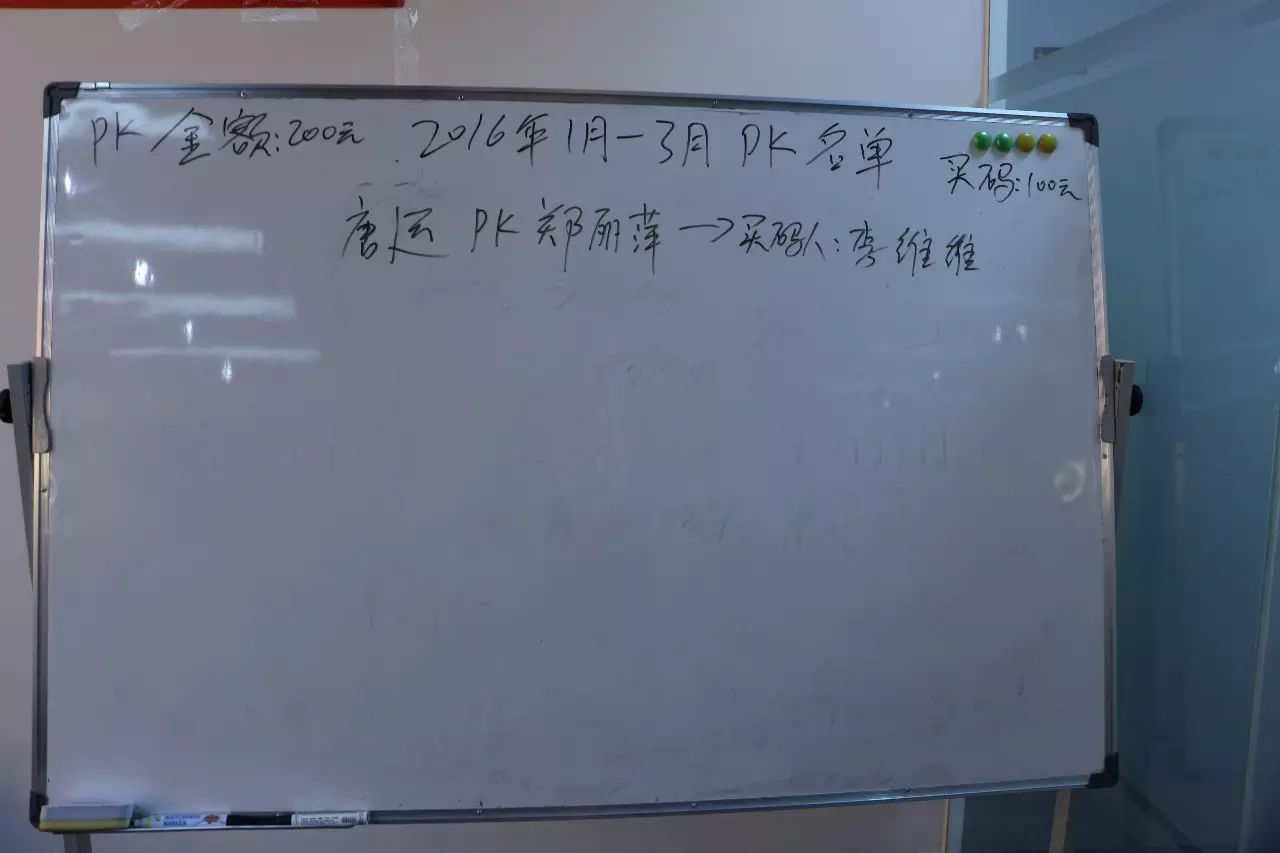 PK金额:200元 2016年1月-3月PK名单
买码:100元
唐运 PK 郑丽萍→买码人:李维维